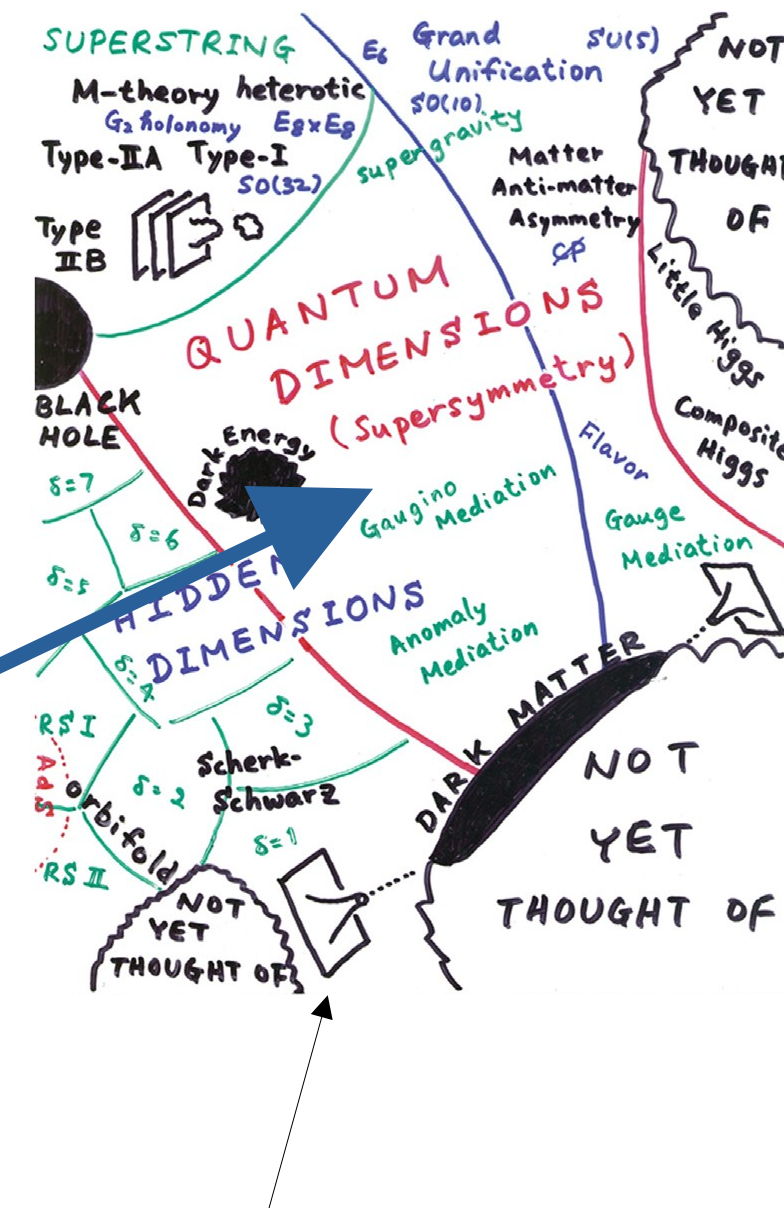 SUPERSTRING
M-theory heterotic
G2 holonomy E8xE8
Type-IIA Type-I
SO(32)
Type
IIB
E6
Grand
Unification
SU(5)
SO(10)
supergravity
Matter
Anti-matter
Asymmetry
CP
NOT
YET
THOUGHT
OF
Little Higgs
Composite
Higgs
QUANTUM
DIMENSIONS
(Supersymmetry)
BLACK
HOLE
Dark Energy
Flavor
Gaugino
Mediation
Gauge
Mediation
Anomaly
Mediation
δ=7
δ=6
δ=5
HIDDEN
DIMENSIONS
δ=4
δ=3
RS I
AdS
orbifold
δ=2
Scherk-
Schwarz
δ=1
RS II
DARK MATTER
NOT
YET
THOUGHT OF
NOT
YET
THOUGHT OF